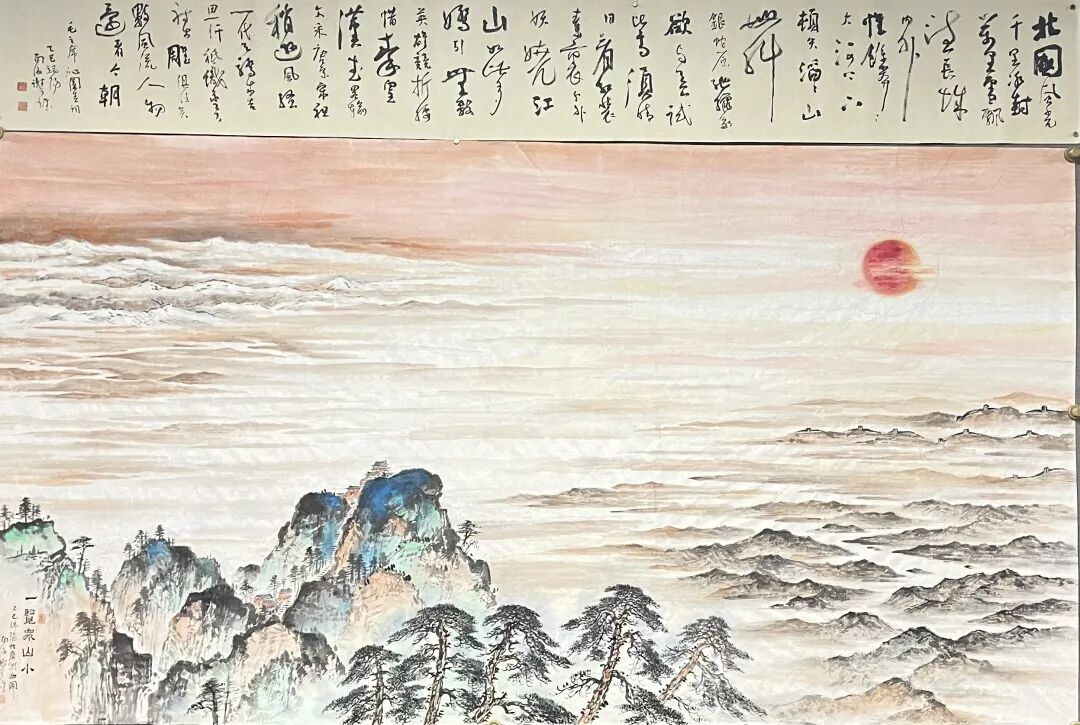 北國風光
千里冰封
萬里雪飄
望長城
內外
惟餘莽莽
大河上下
頓失滔滔山
舞
銀蛇原馳蠟象
欲與天公試
比高須晴
日看紅裝
素裹分外
妖嬈江
山如此多
嬌引無數
英雄競折腰
惜秦皇
漢武略輸
文采唐宗宋祖
稍遜風騷
一代天驕成吉
思汗祇識彎弓
射雕俱往矣
數風流人物
還看今朝
毛主席沁園春詞
乙巳端陽
一覽眾山小
乙巳端陽